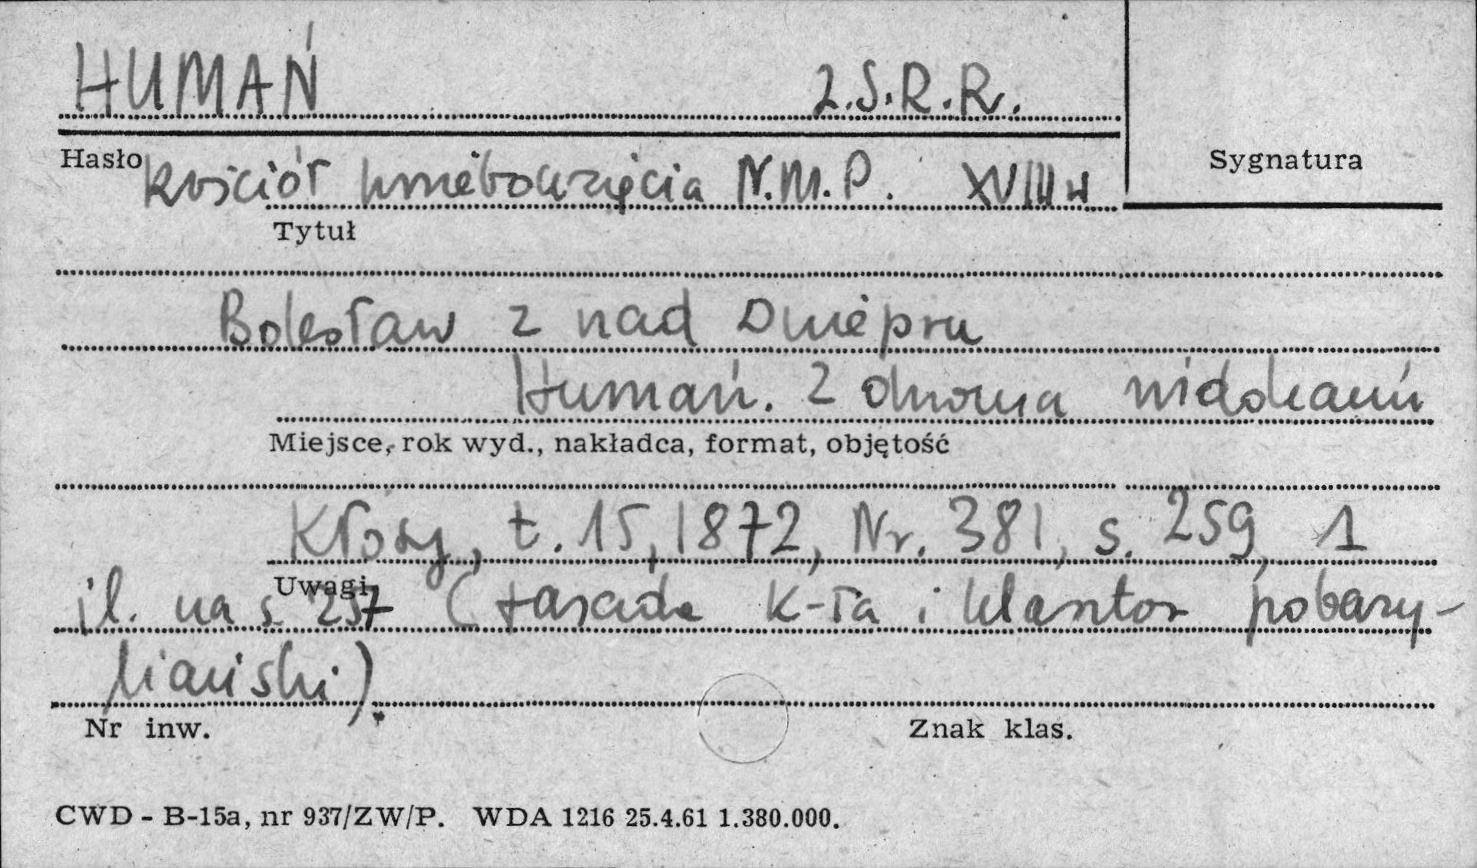 HUMAŃ Z.S.R.R.
Hasło Sygnatura
kościół Wniebowzięcia N.M.P. XVIII w
Tytuł
Bolesław z nad Dniepru
Humań. Z dwoma widokami
Miejsce, rok wyd., nakładca, format, objętość
Kłosy, t. 15, 1872, Nr. 381, s. 259, 1
Uwagi
il. na s. 257 (fasada k-ła i klasztor pobazy-
liański).
Nr inw. Znak klas.
CWD - B-15a, nr 937/ZW/P. WDA 1216 25.4.61 1.380.000.